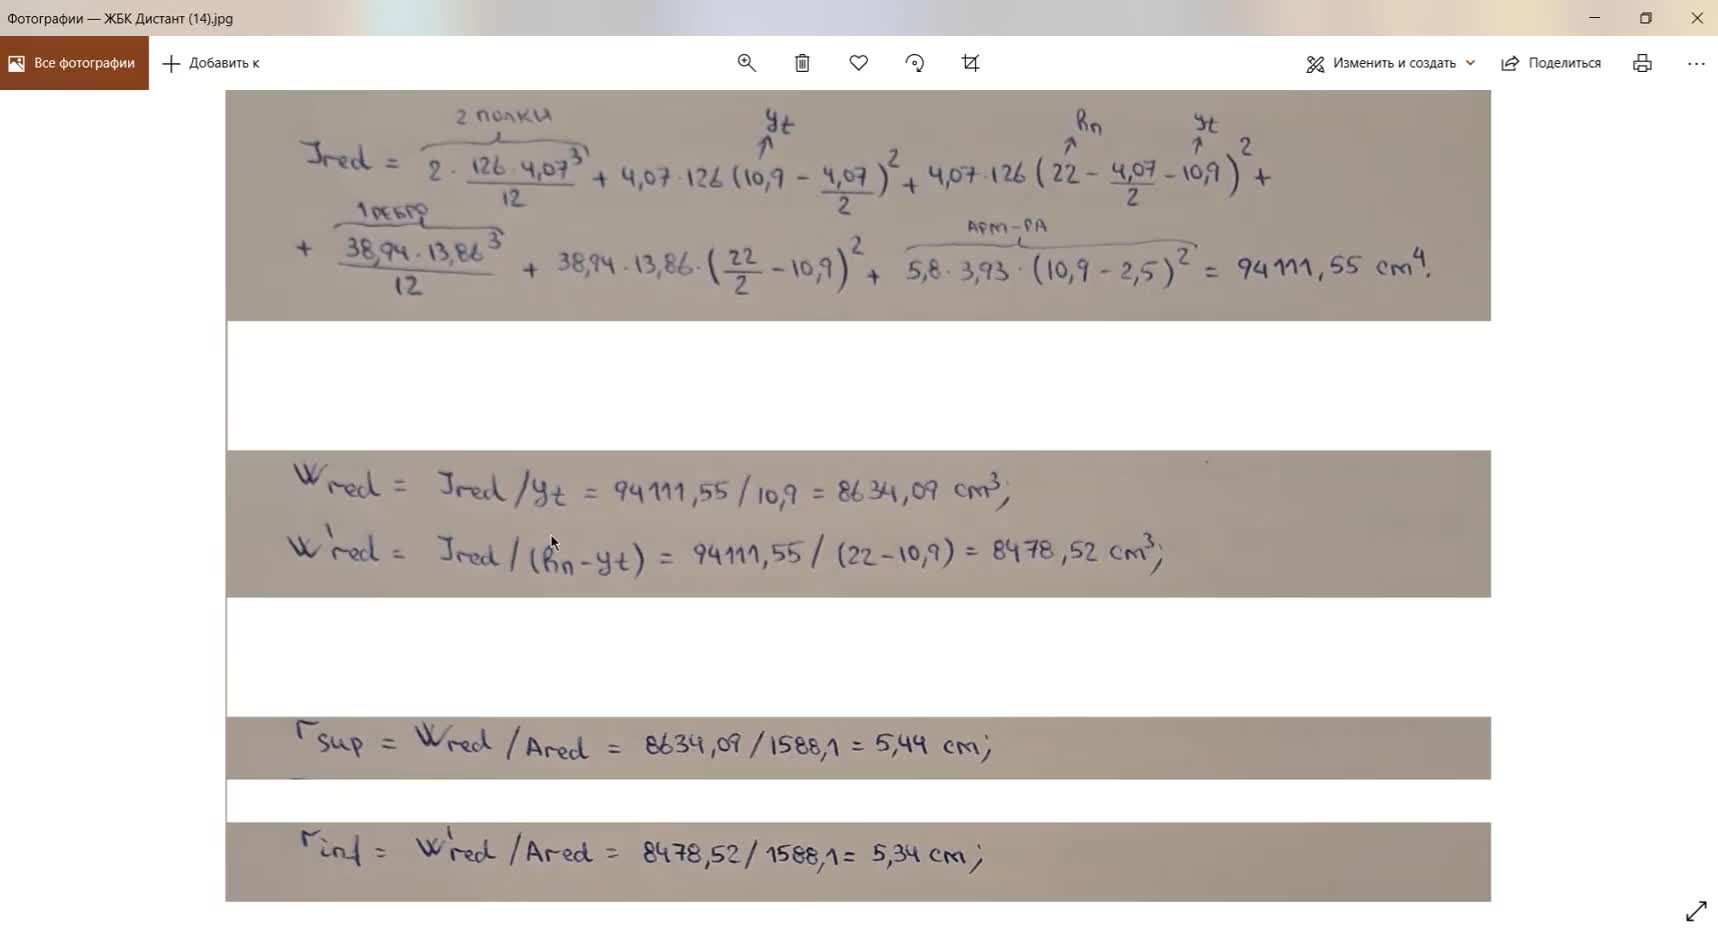 Фотографии — ЖБК Дистант (14).jpg
Все фотографии
Добавить к
Изменить и создать
Поделиться
2 полки
yt
hn
yt
Jred = 2 · 126 · 4,07³/12 + 4,07 · 126 (10,9 − 4,07/2)² + 4,07 · 126 (22 − 4,07/2 − 10,9)² +
1 ребро
арм-ра
+ 38,94 · 13,86³/12 + 38,94 · 13,86 · (22/2 − 10,9)² + 5,8 · 3,93 · (10,9 − 2,5)² = 94111,55 cm⁴.
Wred = Jred / yt = 94111,55 / 10,9 = 8634,09 cm³;
W'red = Jred / (hn − yt) = 94111,55 / (22 − 10,9) = 8478,52 cm³;
rsup = Wred / Ared = 8634,09 / 1588,1 = 5,44 cm;
rinf = W'red / Ared = 8478,52 / 1588,1 = 5,34 cm;